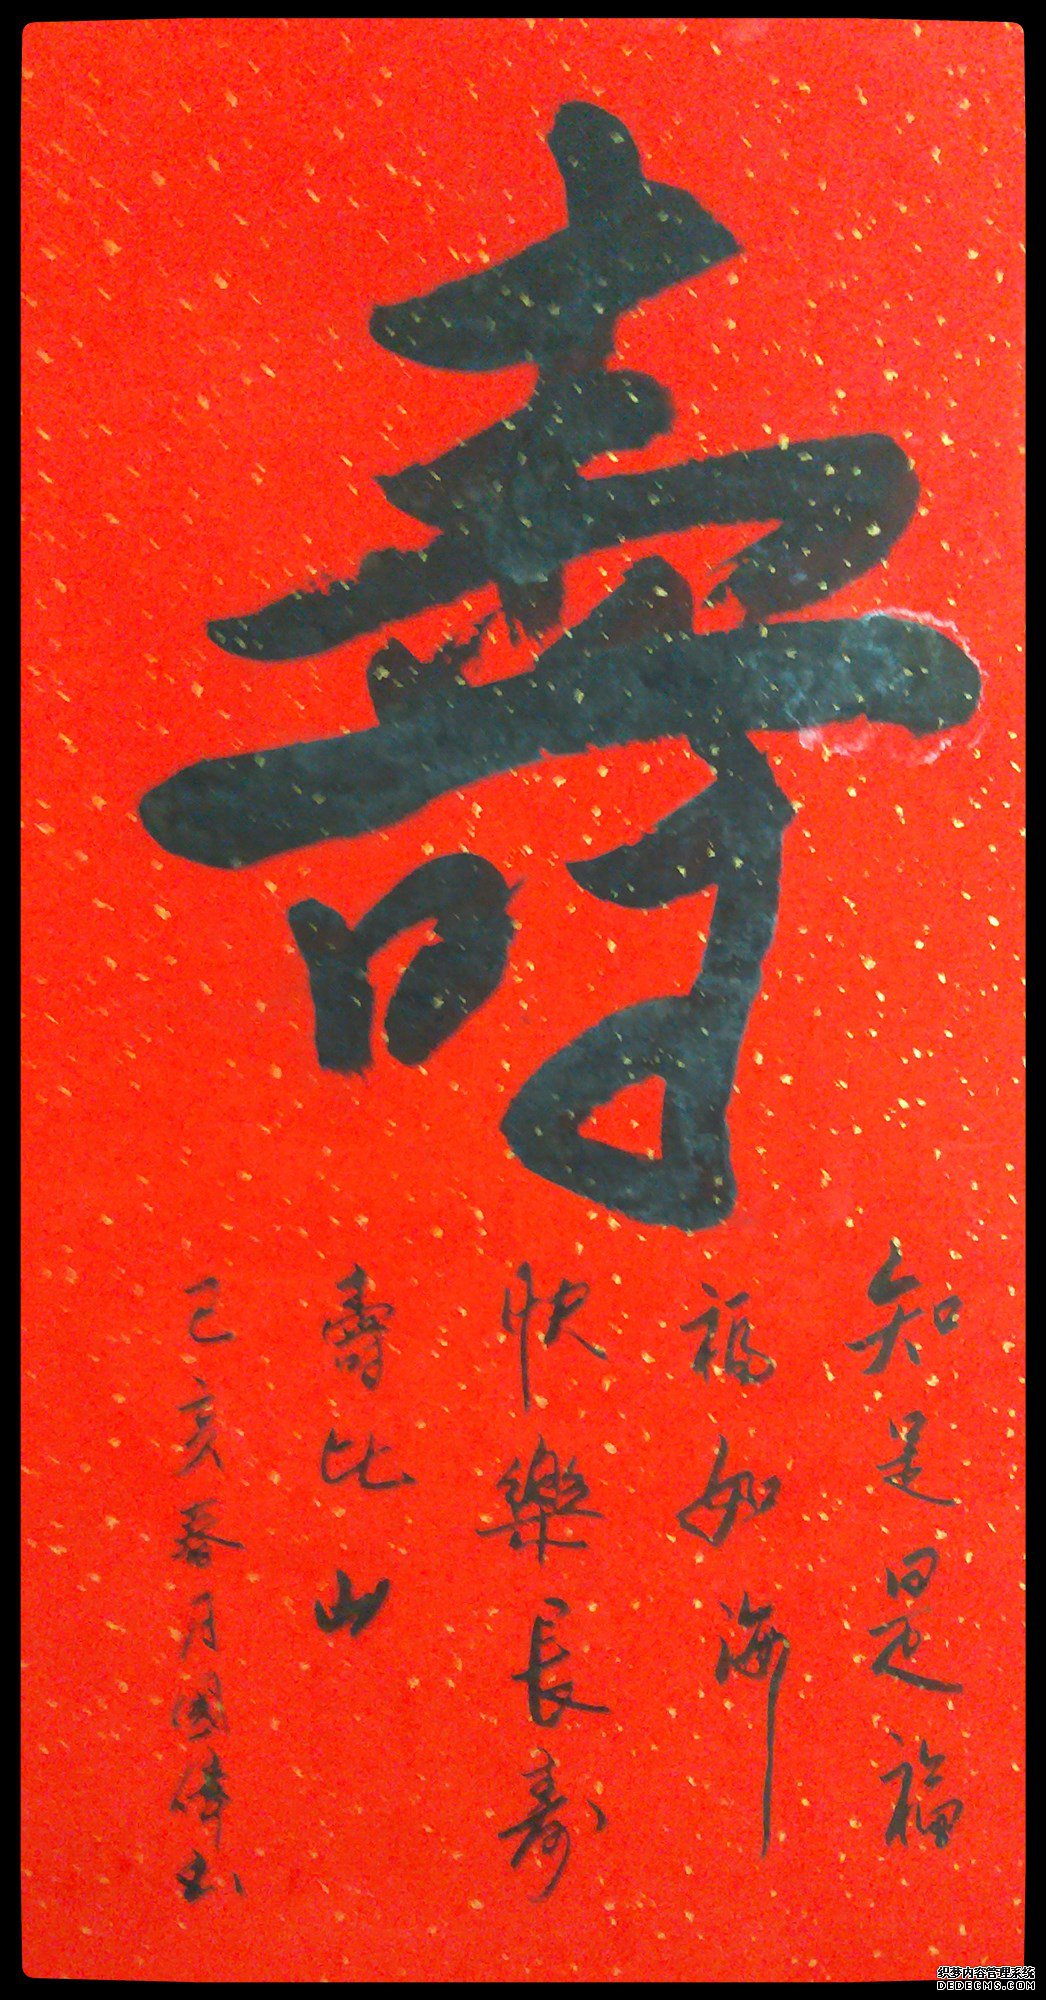 壽
知足是福
福如海
快樂長寿
壽比山
己亥春月國偉书
织梦内容管理系统
DEDECMS.COM